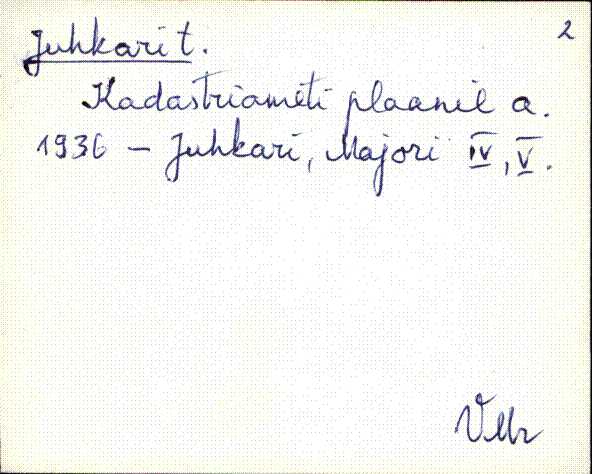 2
Juhkari t.
Kadastriameti plaanil a.
1936 – Juhkari, Majori IV, V.
VMr